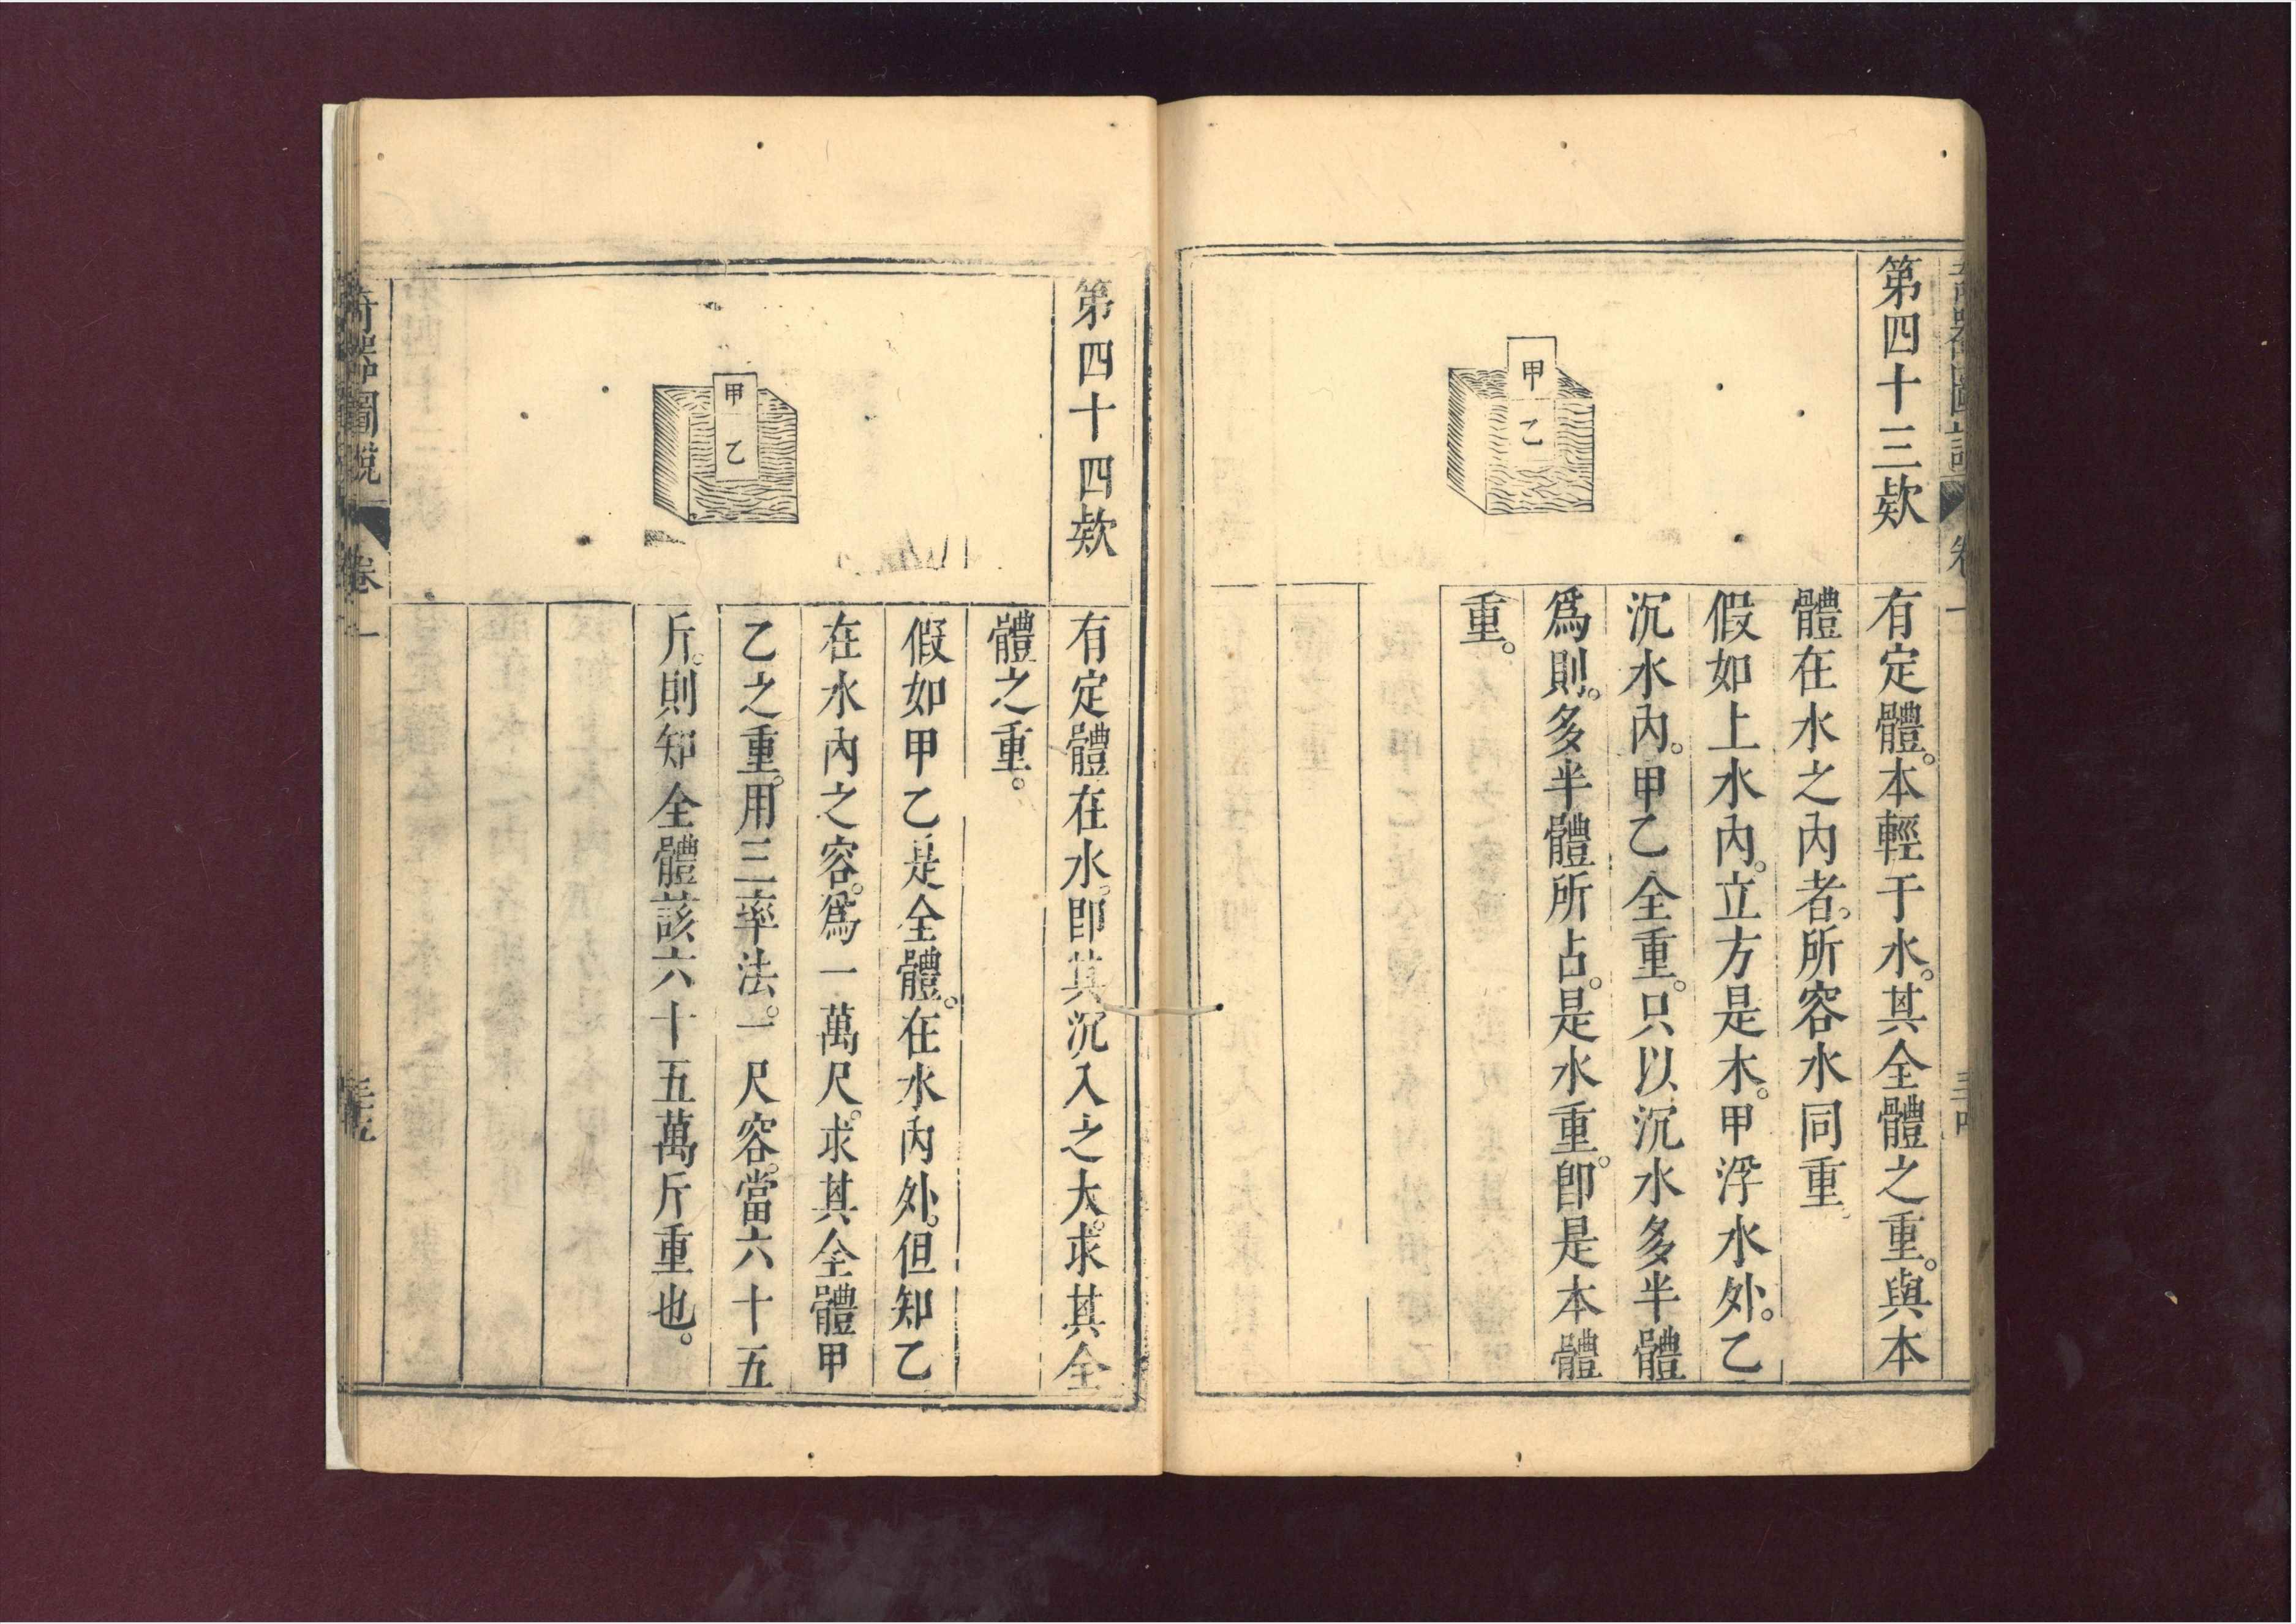 第四十三欵
有定體。本輕于水。其全體之重。與本
體在水之內者。所容水同重
假如上水內。立方是木。甲浮水外。乙
沉水內。甲乙全重。只以沉水多半體
爲則。多半體所占。是水重。卽是本體
重。
甲
乙
第四十四欵
有定體在水。卽其沉入之大。求其全
體之重。
假如甲乙是全體。在水內外。但知乙
在水內之容。爲一萬尺。求其全體甲
乙之重。用三率法。一尺容。當六十五
斤。則知全體該六十五萬斤重也。
甲
乙
奇器圖說
卷一
三十五